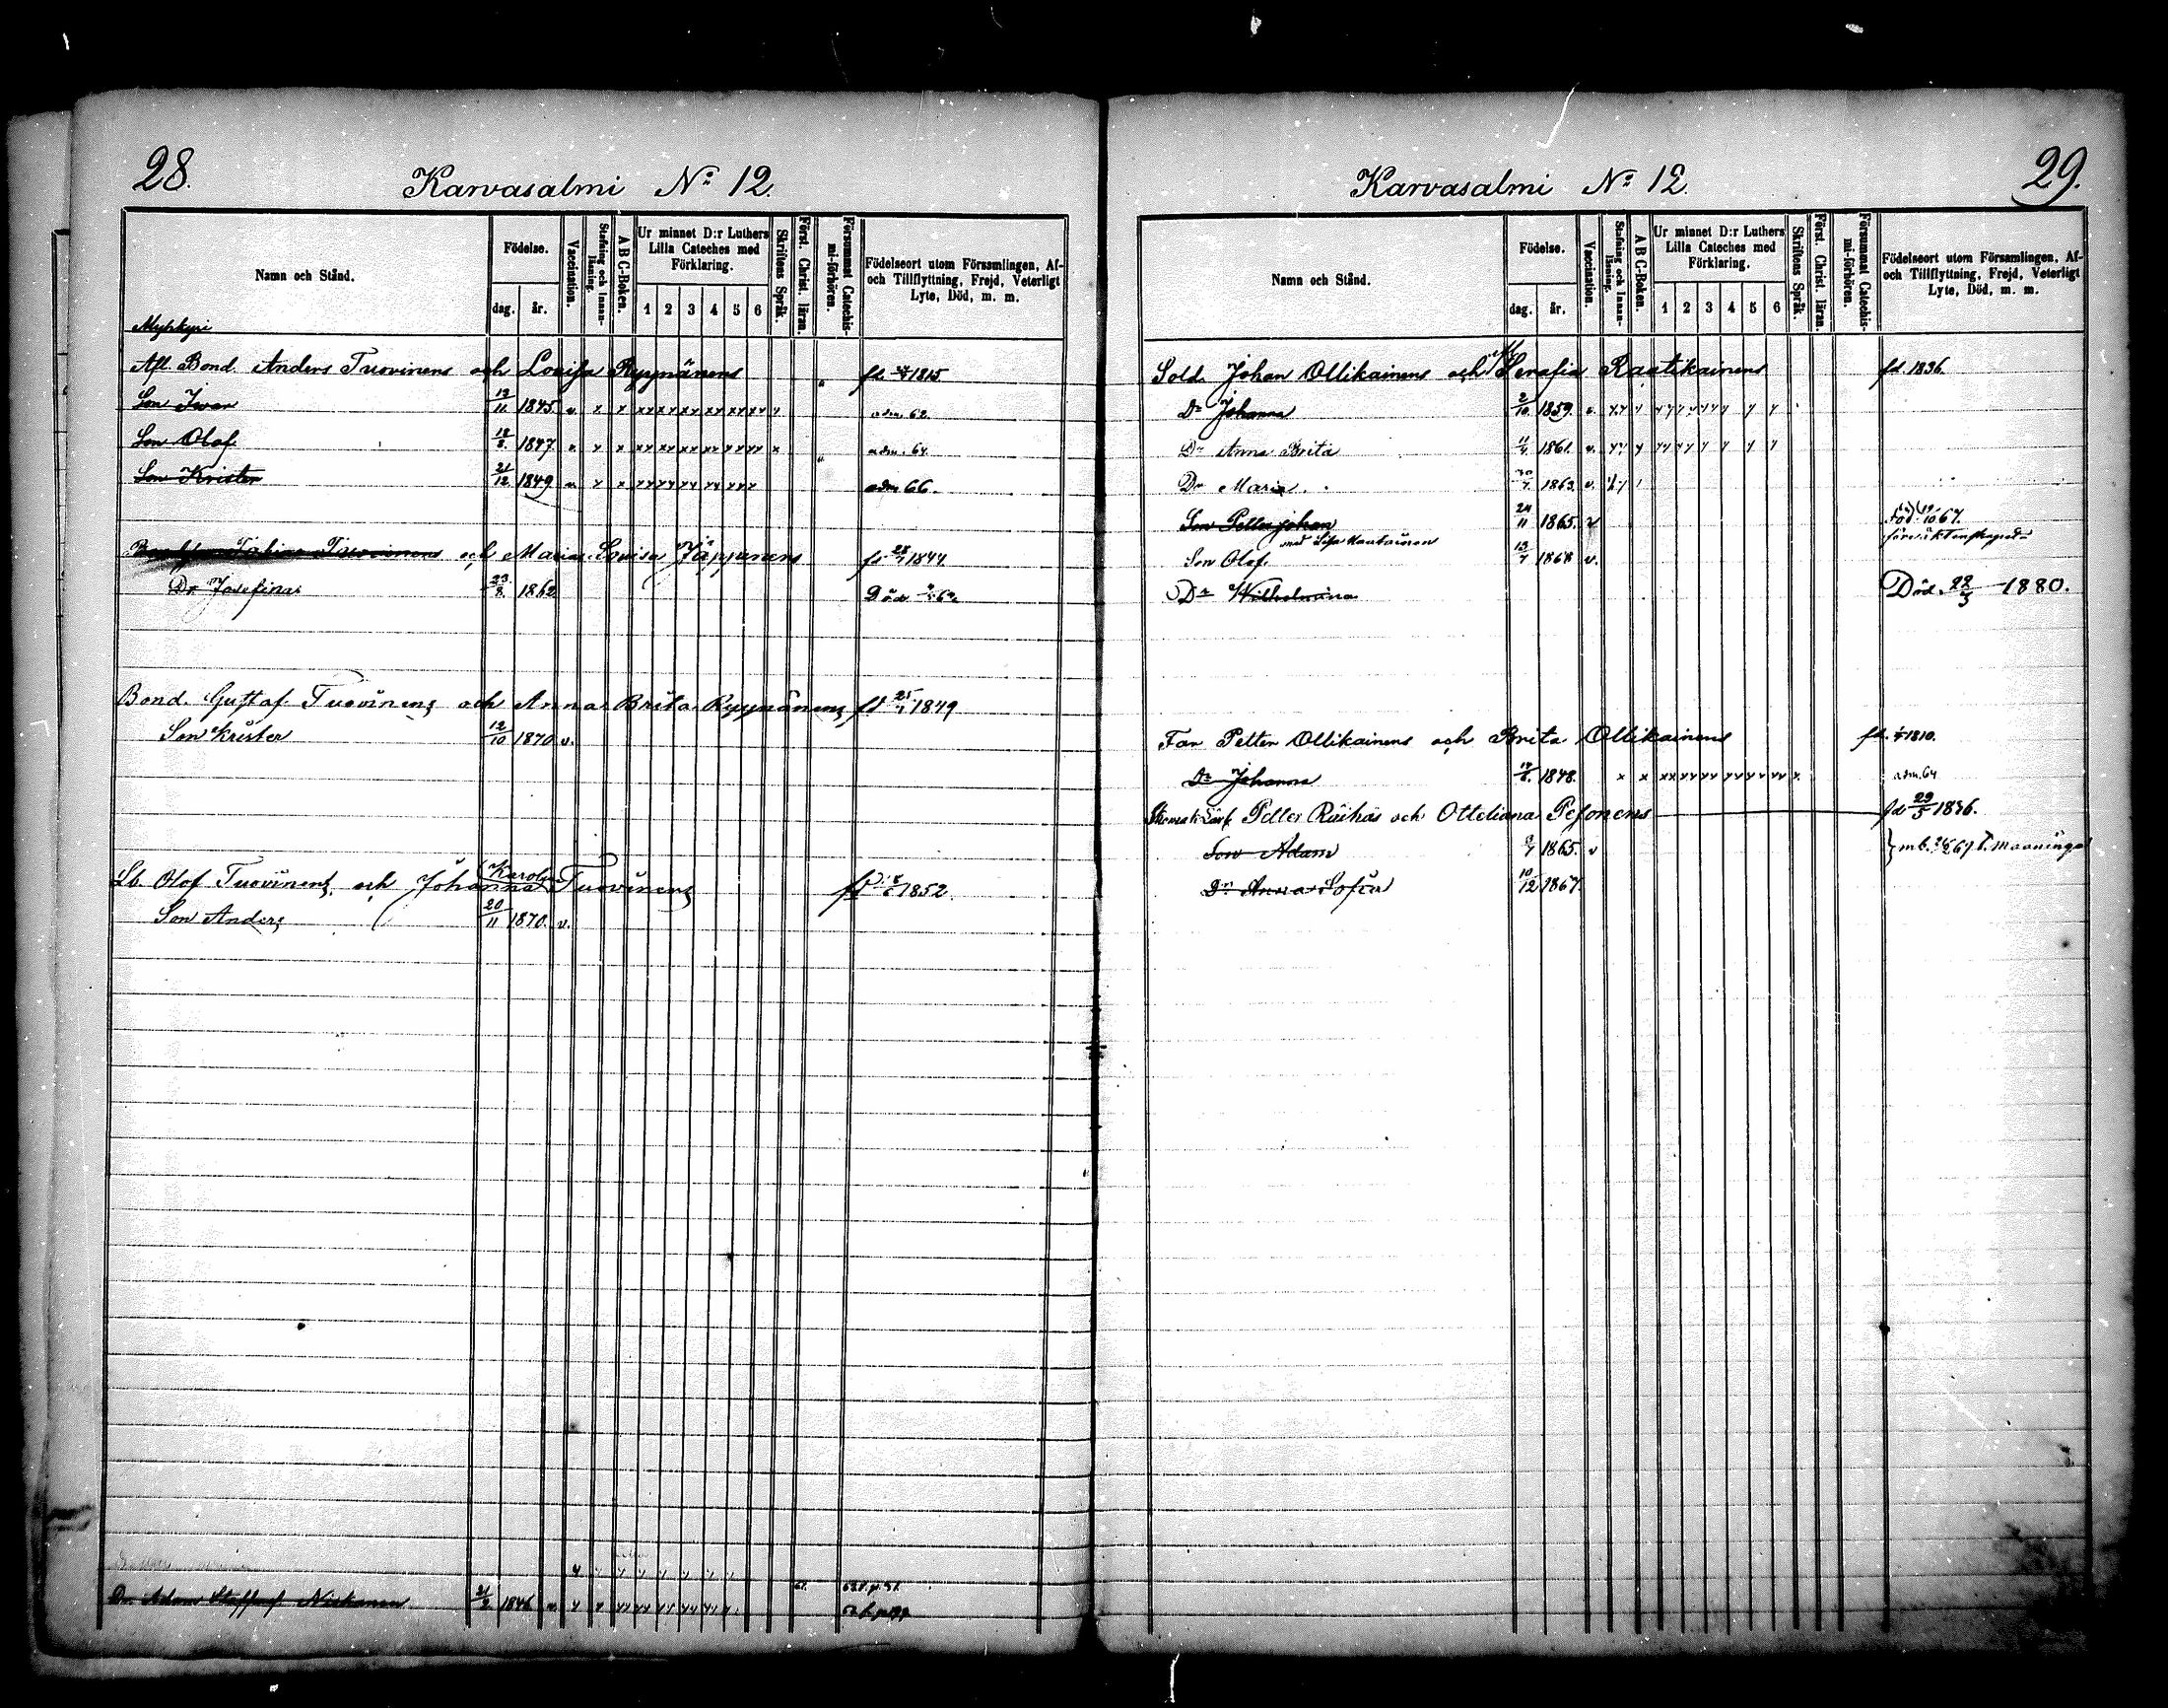 28.
Karvasalmi No 12.
Namn och Stånd.
Födelse.
dag. år.
Vaccination.
Stafning och Innanläsning.
A B C-Boken.
Ur minnet D:r Luthers Lilla Cateches med Förklaring.
1 2 3 4 5 6
Skriftens Språk.
Först. Christ. läran.
Försummat Catechismi-förhören.
Födelseort utom Församlingen, Af- och Tillflyttning, Frejd, Veterligt Lyte, Död, m. m.
Afl. Bond. Anders Tuovinens och Lovisa Ryynänens fd 1815.
Son Iwar 12/11 1845. adm. 62.
Son Olof 18/8 1847. adm. 64.
Son Krister 21/12 1849 adm 66.
Tobias Tuovinens och Maria Lovisa Jäppinens fd 28/7 1844.
Dr Josefina 23/8 1862 Död 62
Bond. Gustaf Tuovinens och Anna Brita Ryynänens fd 25/1 1849
Son Krister 12/10 1870 v.
Karolina
Lb. Olof Tuovinens och Johanna Tuovinens fd 1852.
Son Anders 20/11 1870. v.
Dr. Adam Niskanen 21/2 1846
29.
Karvasalmi No 12.
Namn och Stånd.
Födelse.
dag. år.
Vaccination.
Stafning och Innanläsning.
A B C-Boken.
Ur minnet D:r Luthers Lilla Cateches med Förklaring.
1 2 3 4 5 6
Skriftens Språk.
Först. Christ. läran.
Försummat Catechismi-förhören.
Födelseort utom Församlingen, Af- och Tillflyttning, Frejd, Veterligt Lyte, Död, m. m.
Sold. Johan Ollikainens och Serafia Raatikainens fd. 1836.
Dr Johanna 2/10 1859. v.
Dr Anna Brita 11/4 1861. v.
Dr Maria 1863. v.
Son Petter Johan 24/11 1865. v Död 67.
Son Olof 13/7 1868 v.
Dr Wilhelmina Död. 22/3 1880.
Far Petter Ollikainens och Brita Ollikainens fd. 1810.
Dr Johanna 1848. adm. 64
Petter Riihäs och Otteliana Pesonens fd 29/5 1836.
Son Adam 1865. v
Dr Anna Sofia 10/12 1867.